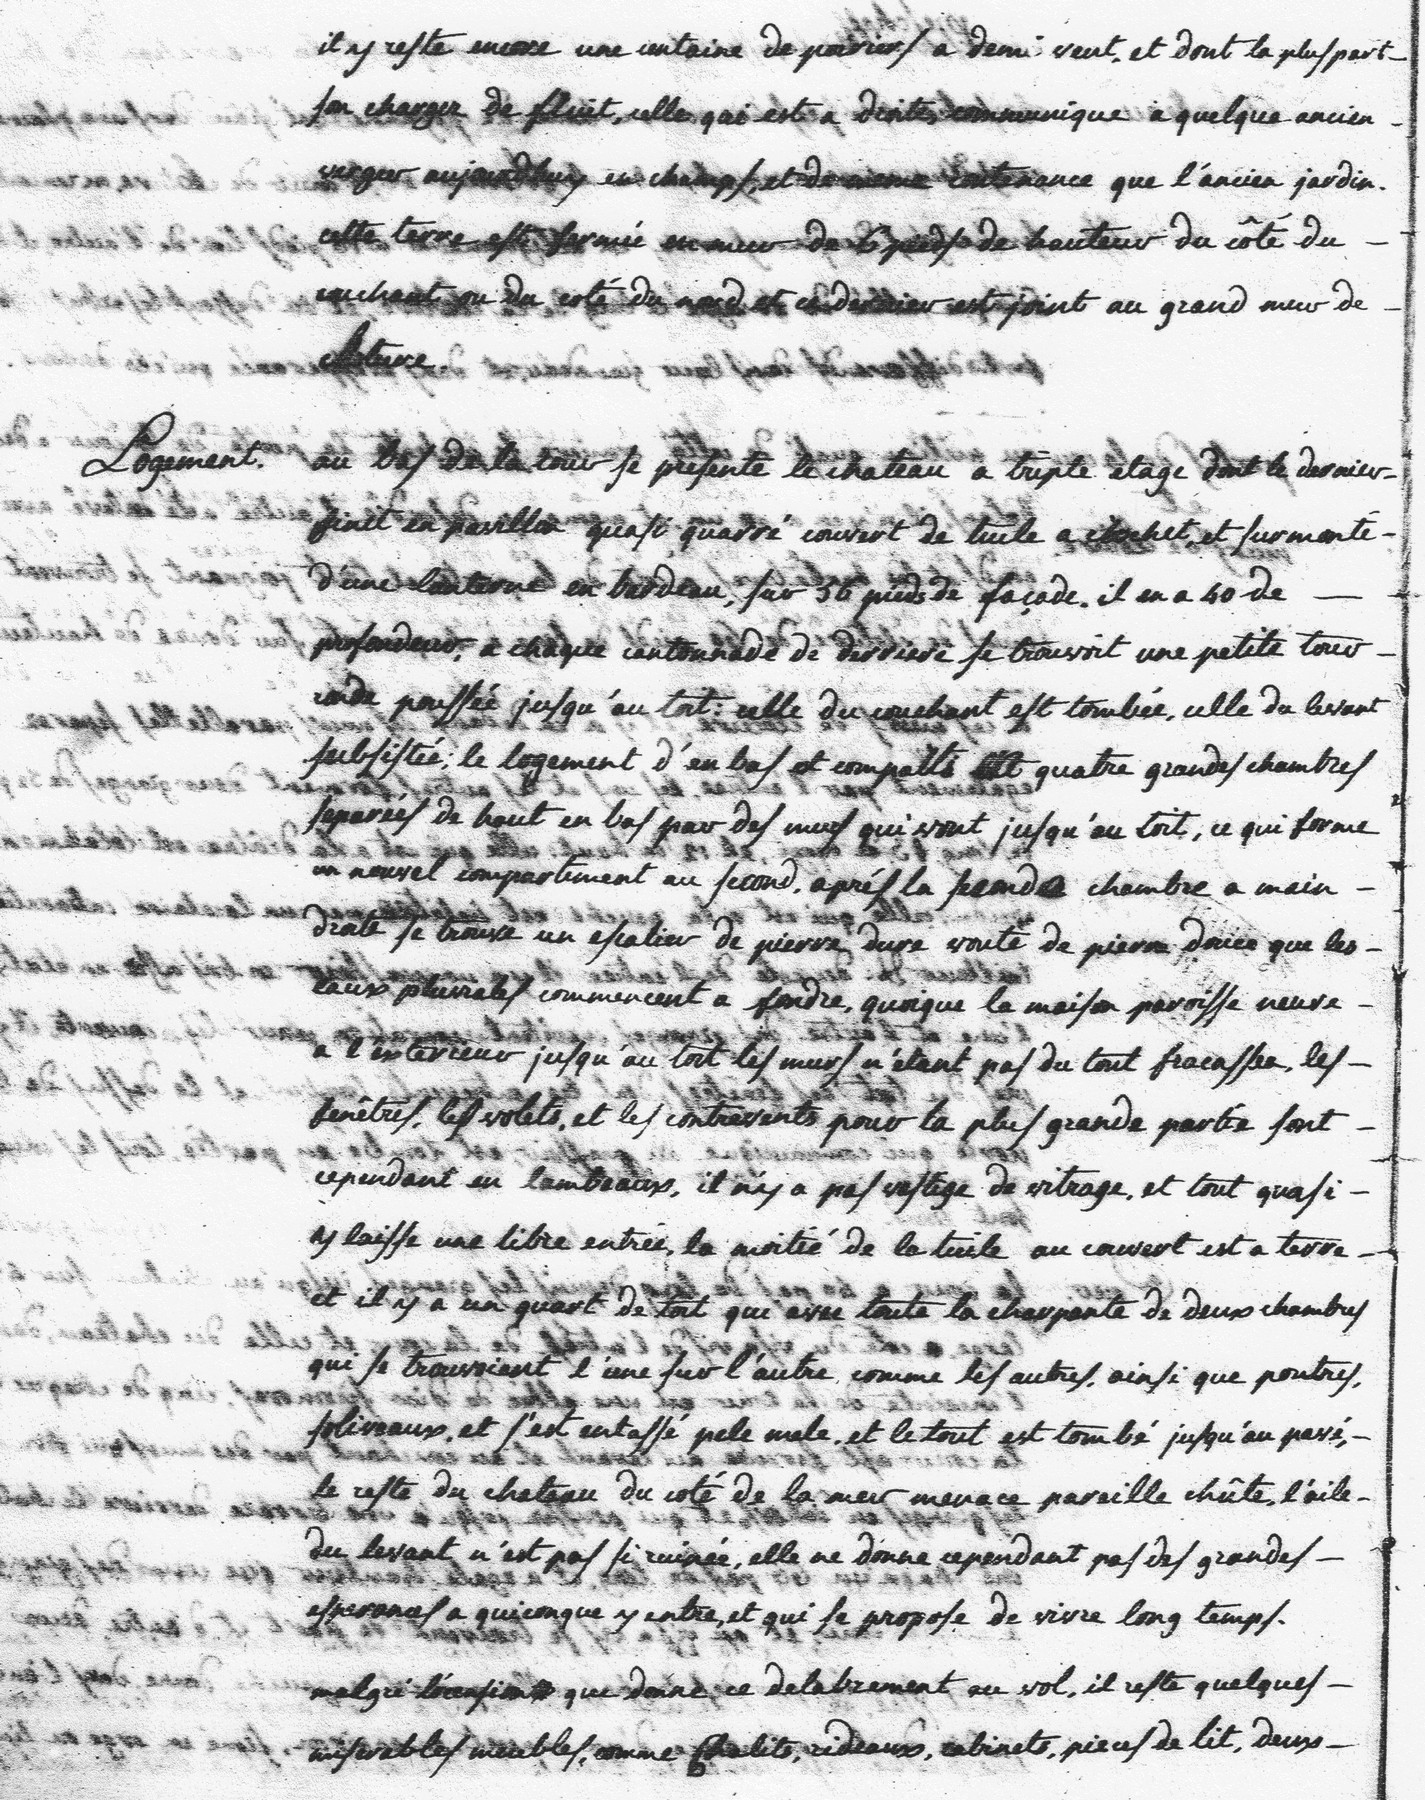 il y reste encore une centaine de poiriers a demi vent, et dont la pluspart
son charger de fluit, celle qui est a droite communique a quelque ancien
verger aujourdhuy en champs, et de meme contenance que l'ancien jardin.
cette terre est fermée en mur de 6 pieds de hauteur du côté du
couchant ou du coté du nord et ce dernier est joint au grand mur de
cloture.
Logement. au bas de la cour se presente le chateau a triple etage dont le dernier
finit en pavillon quasi quarré couvert de tuile a crochet, et surmonté
d'une lanterne en bardeau, sur 56 pieds de façade. il en a 40 de
profondeur, a chaque cantonnade de derriere se trouvoit une petite tour
ronde poussée jusqu'au toit: celle du couchant est tombée, celle du levant
subsistée; le logement d'en bas et quatre grandes chambres
separées de haut en bas par des murs qui vont jusqu'au toit, ce qui forme
un nouvel compartiment au second. aprés la seconde chambre a main
droite se trouve un escalier de pierre dure vouté de pierre douce que les
eaux pluviales commencent a fondre, quoique la maison paroisse neuve
a l'exterieur jusqu'au toit les murs n'etant pas du tout fracassea, les
fenêtres, les volets, et les contrevents pour la plus grande partie sont
cependant en lambeaux, il n'y a pas vestige de vitrage, et tout quasi
y laisse une libre entrée, la moitié de la tuile au couvert est a terre
et il y a un quart de toit qui avec toute la charpente de deux chambres
qui se trouvoient l'une sur l'autre comme les autres, ainsi que poutres,
soliveaux, et s'est entassé pele mele, et le tout est tombé jusqu'au pavé,
le reste du chateau du coté de la mer menace pareille chûte, l'aile
du levant n'est pas si ruinée, elle ne donne cependant pas des grandes
esperances a quiconque y entre, et qui se propose de vivre long temps.
malgré l'ocasion que donne ce delabrement au vol, il reste quelques
miserables meubles, comme Chalits, rideaux, cabinets, pieces de lit, deux